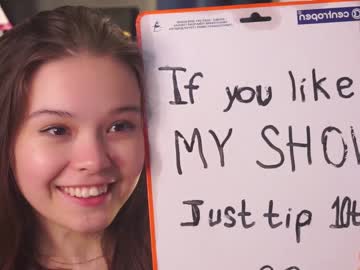 centropen
If you like
MY SHOW
Just tip 10t